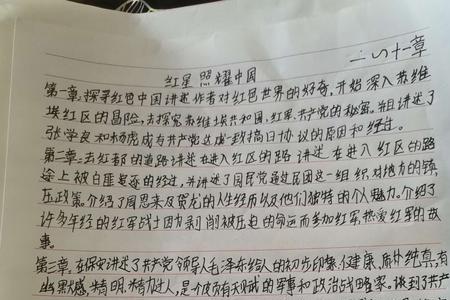 一~十一章
红星照耀中国
第一章,探寻红色中国讲述作者对红色世界的好奇,开始深入苏维
埃红区的冒险,去探究苏维埃共和国,红军,共产党的秘密。并且讲述了
张学良和杨虎成与共产党达成一致搞日协议的原因和经过。
第二章:去红都的道路讲述在进入红区的路讲述在进入红区的路
途上被白匪追逐的经过,并讲述了国民党通过民团这一组织,对地方的镇
压政策。介绍了周恩来及贺龙的人生经历以及他们独特的个人魅力。介绍了
许多年轻的红军战士因为剥削被压迫的命运而参加红军,热爱红军的故
事。
第三章,在保安讲述了共产党领导人毛泽东给人的初步印象,健康,质朴纯真,有
幽默感,精明,精力过人,是个颇有天赋的军事和政治战略家。谈到了共产